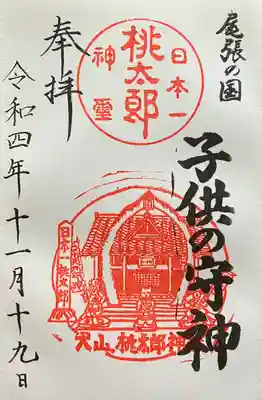 尾張の国
子供の守神
奉拝
日本一
桃太郎
神霊
日本一桃太郎
犬山桃太郎神
令和四年十一月十九日